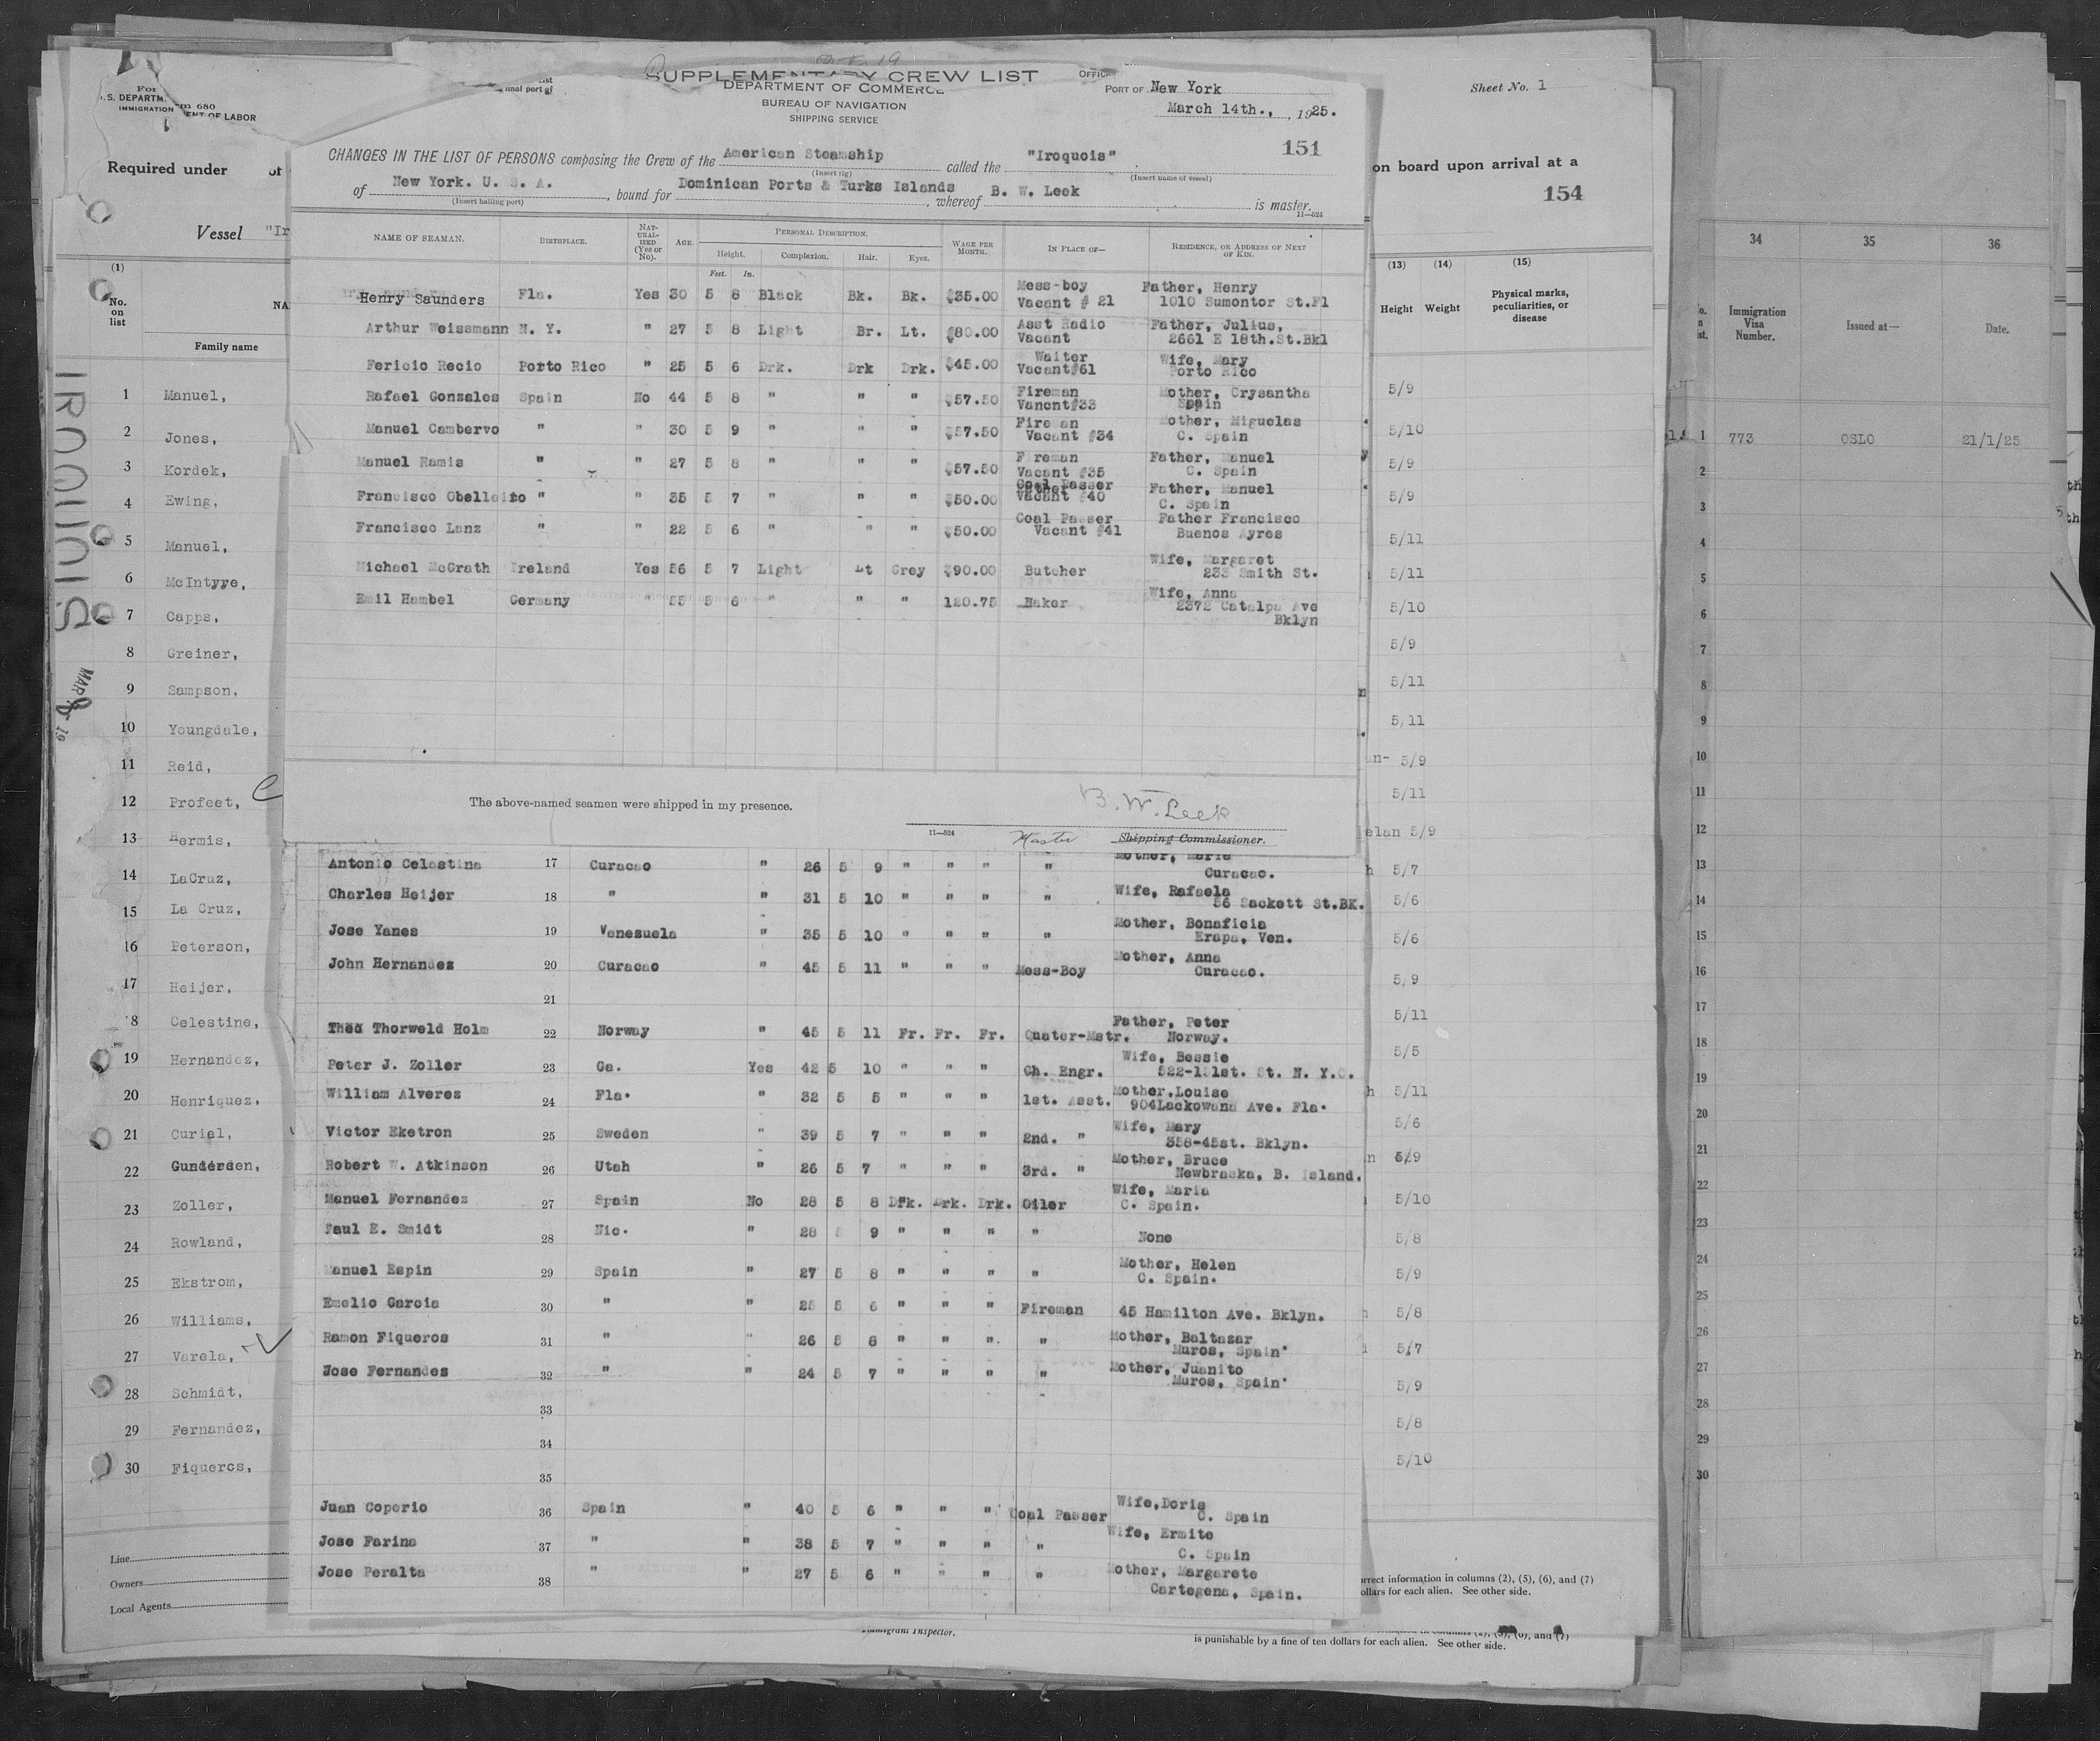 SUPPLEMENTARY CREW LIST
DEPARTMENT OF COMMERCE
BUREAU OF NAVIGATION
SHIPPING SERVICE
PORT OF New York
March 14th., , 1925.
151
CHANGES IN THE LIST OF PERSONS composing the Crew of the American Steamship called the "Iroquois"
(Insert rig) (Insert name of vessel)
of New York. U. S. A. , bound for Dominican Ports & Turks Islands , whereof B. W. Leek is master.
(Insert hailing port) 11—524
NAME OF SEAMAN. BIRTHPLACE. NAT-URAL-IZED (Yes or No). AGE. PERSONAL DESCRIPTION. WAGE PER MONTH. IN PLACE OF— RESIDENCE, OR ADDRESS OF NEXT OF KIN.
Height. Complexion. Hair. Eyes.
Feet. In.
Henry Saunders Fla. Yes 30 5 8 Black Bk. Bk. $35.00 Mess-boy Vacant # 21 Father, Henry 1010 Sumontor St.Fl
Arthur Weissmann N. Y. " 27 5 8 Light Br. Lt. $80.00 Asst Radio Vacant Father, Julius, 2661 E 18th.St.Bkl
Fericio Recio Porto Rico " 25 5 6 Drk. Drk Drk. $45.00 Waiter Vacant#61 Wife, Mary Porto Rico
Rafael Gonzales Spain No 44 5 8 " " " $57.50 Fireman Vancnt#33 Mother, Crysantha Spain
Manuel Cambervo " " 30 5 9 " " " $57.50 Fireman Vacant #34 Mother, Miguelas C. Spain
Manuel Ramis " " 27 5 8 " " " $57.50 Fireman Vacant #35 Father, Manuel C. Spain
Francisco Obelleiro " " 35 5 7 " " " $50.00 Coal Passer Vacant #40 Father, Manuel C. Spain
Francisco Lanz " " 22 5 6 " " " $50.00 Coal Passer Vacant #41 Father Francisco Buenos Ayres
Michael McGrath Ireland Yes 56 5 7 Light Lt Grey $90.00 Butcher Wife, Margaret 233 Smith St.
Emil Hambel Germany " 55 5 6 " " " 120.75 Baker Wife, Anna 2372 Catalpa Ave Bklyn
The above-named seamen were shipped in my presence.
B. W. Leek
11—524 Master Shipping Commissioner.
Antonio Celestina 17 Curacao " 26 5 9 " " " " Mother, Maria Curacao.
Charles Heijer 18 " " 31 5 10 " " " " Wife, Rafaela 56 Sackett St.BK.
Jose Yanes 19 Venesuela " 35 5 10 " " " " Mother, Bonaficia Erapa, Ven.
John Hernandez 20 Curacao " 45 5 11 " " " Mess-Boy Mother, Anna Curacao.
21
Thorweld Holm 22 Norway " 45 5 11 Fr. Fr. Fr. Quater-Mstr. Father, Peter Norway.
Peter J. Zoller 23 Ga. Yes 42 5 10 " " " Ch. Engr. Wife, Bessie St. N. Y.C.
William Alverez 24 Fla. " 32 5 5 " " " 1st. Asst. Mother,Louise 904Lackowana Ave. Fla.
Victor Eketron 25 Sweden " 39 5 7 " " " 2nd. " Wife, Mary 358-45st. Bklyn.
Robert W. Atkinson 26 Utah " 26 5 7 " " " 3rd. " Mother, Bruce Newbraska, B. Island.
Manuel Fernandez 27 Spain No 28 5 8 Drk. Drk. Drk. Oiler Wife, Maria C. Spain.
Paul E. Smidt 28 Nic. " 28 5 9 " " " " None
Manuel Espin 29 Spain " 27 5 8 " " " " Mother, Helen C. Spain.
Emelio Garcia 30 " " 25 5 6 " " " Fireman 45 Hamilton Ave. Bklyn.
Ramon Fiqueros 31 " " 26 5 8 " " " " Mother, Baltazar Muros, Spain
Jose Fernandes 32 " " 24 5 7 " " " " Mother, Juanito Muros, Spain
33
34
35
Juan Coperio 36 Spain " 40 5 6 " " " Coal Passer Wife,Doris C. Spain
Jose Farina 37 " " 38 5 7 " " " " Wife, Ermite C. Spain
Jose Peralta 38 " " 27 5 6 " " " " Mother, Margarete Cartegena, Spain.
S. DEPARTM ENT OF LABOR
IMMIGRATION
680
Required under
Vessel "Ir
(1)
No. on list
Family name
IROQUOIS
MAR
1 Manuel,
2 Jones,
3 Kordek,
4 Ewing,
5 Manuel,
6 McIntyye,
7 Capps,
8 Greiner,
9 Sampson,
10 Youngdale,
11 Reid,
12 Profeet,
13 Hermis,
14 LaCruz,
15 La Cruz,
16 Peterson,
17 Heijer,
18 Celestine,
19 Hernandez,
20 Henriquez,
21 Curiel,
22 Gundersen,
23 Zoller,
24 Rowland,
25 Ekstrom,
26 Williams,
27 Varela,
28 Schmidt,
29 Fernandez,
30 Fiqueros,
Line
Owners
Local Agents
Sheet No. 1
on board upon arrival at a
154
(13) (14) (15)
Height Weight Physical marks, peculiarities, or disease
5/9
5/10
5/9
5/9
5/11
5/11
5/10
5/9
5/11
5,11
5/9
5/11
elan 5/9
5/7
5/6
5/6
5,9
5/11
5/5
5/11
5/6
5/10
5/8
5/9
5/8
5/7
5/9
5/8
5/10
orrect information in columns (2), (5), (6), and (7)
ollars for each alien. See other side.
Immigrant Inspector.
is punishable by a fine of ten dollars for each alien. See other side.
34 35 36
Immigration Visa Number. Issued at— Date.
1 773 OSLO 21/1/25
2
3
4
5
6
7
8
9
10
11
12
13
14
15
16
17
18
19
20
21
22
23
24
25
26
27
28
29
30